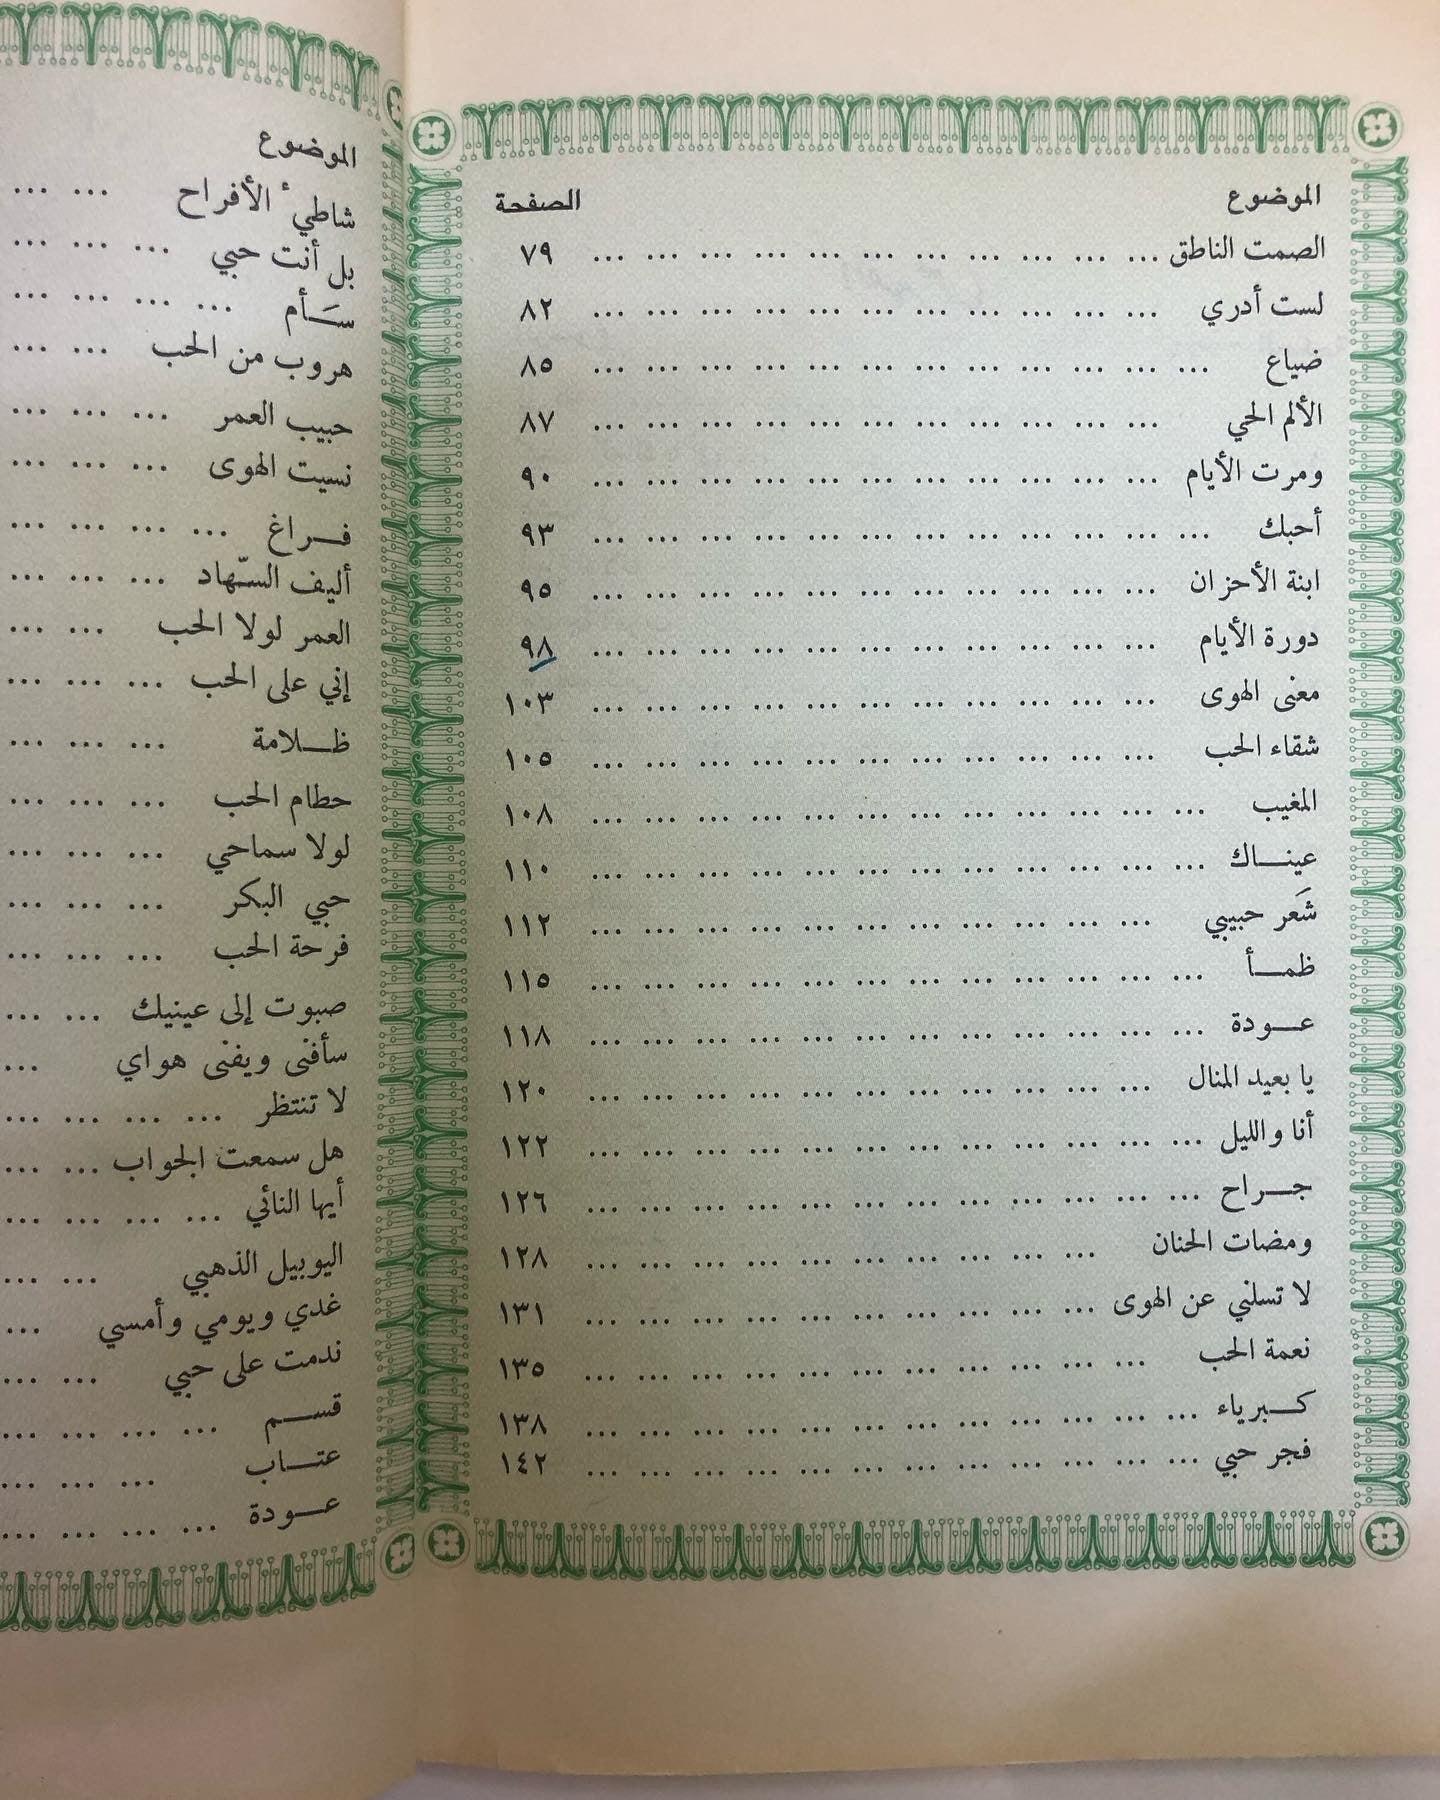 الموضوع الصفحة
الصمت الناطق ... ... ... ... ... ... ... ... ... ... ... ٧٩
لست أدري ... ... ... ... ... ... ... ... ... ... ... ٨٢
ضياع ... ... ... ... ... ... ... ... ... ... ... ... ٨٥
الألم الحي ... ... ... ... ... ... ... ... ... ... ... ٨٧
ومرت الأيام ... ... ... ... ... ... ... ... ... ... ... ٩٠
أحبك ... ... ... ... ... ... ... ... ... ... ... ... ٩٣
ابنة الأحزان ... ... ... ... ... ... ... ... ... ... ... ٩٥
دورة الأيام ... ... ... ... ... ... ... ... ... ... ... ٩٨
معنى الهوى ... ... ... ... ... ... ... ... ... ... ... ١٠٣
شقاء الحب ... ... ... ... ... ... ... ... ... ... ... ١٠٥
المغيب ... ... ... ... ... ... ... ... ... ... ... ... ١٠٨
عينـــاك ... ... ... ... ... ... ... ... ... ... ... ... ١١٠
شَعر حبيبي ... ... ... ... ... ... ... ... ... ... ... ١١٢
ظمـــأ ... ... ... ... ... ... ... ... ... ... ... ... ١١٥
عـــودة ... ... ... ... ... ... ... ... ... ... ... ... ١١٨
يا بعيد المنال ... ... ... ... ... ... ... ... ... ... ... ١٢٠
أنا والليل ... ... ... ... ... ... ... ... ... ... ... ... ١٢٢
جـــراح ... ... ... ... ... ... ... ... ... ... ... ... ١٢٦
ومضات الحنان ... ... ... ... ... ... ... ... ... ... ١٢٨
لا تسلني عن الهوى ... ... ... ... ... ... ... ... ... ... ١٣١
نعمة الحب ... ... ... ... ... ... ... ... ... ... ... ١٣٥
كـــبرياء ... ... ... ... ... ... ... ... ... ... ... ... ١٣٨
فجر حبي ... ... ... ... ... ... ... ... ... ... ... ... ١٤٢
الموضوع
شاطيء الأفراح ... ...
بل أنت حبي ... ... ...
ســَـأم ... ... ... ...
هروب من الحب ... ...
حبيب العمر ... ... ...
نسيت الهوى ... ... ...
فـــراغ ... ... ... ...
أليف السـّهاد ... ... ...
العمر لولا الحب ... ...
إني على الحب ... ... ...
ظـــلامة ... ... ...
حطام الحب ... ... ...
لولا سماحي ... ... ...
حبي البكر ... ... ...
فرحة الحب ... ... ...
صبوت إلى عينيك ... ...
سأفنى ويفنى هواي ...
لا تنتظر ... ... ... ...
هل سمعت الجواب ... ...
أيها النائي ... ... ... ...
اليوبيل الذهبي ... ...
غدي ويومي وأمسي ...
ندمت على حبي ... ...
قســـم ... ... ... ...
عتـــاب ... ... ...
عـــودة ... ... ... ...